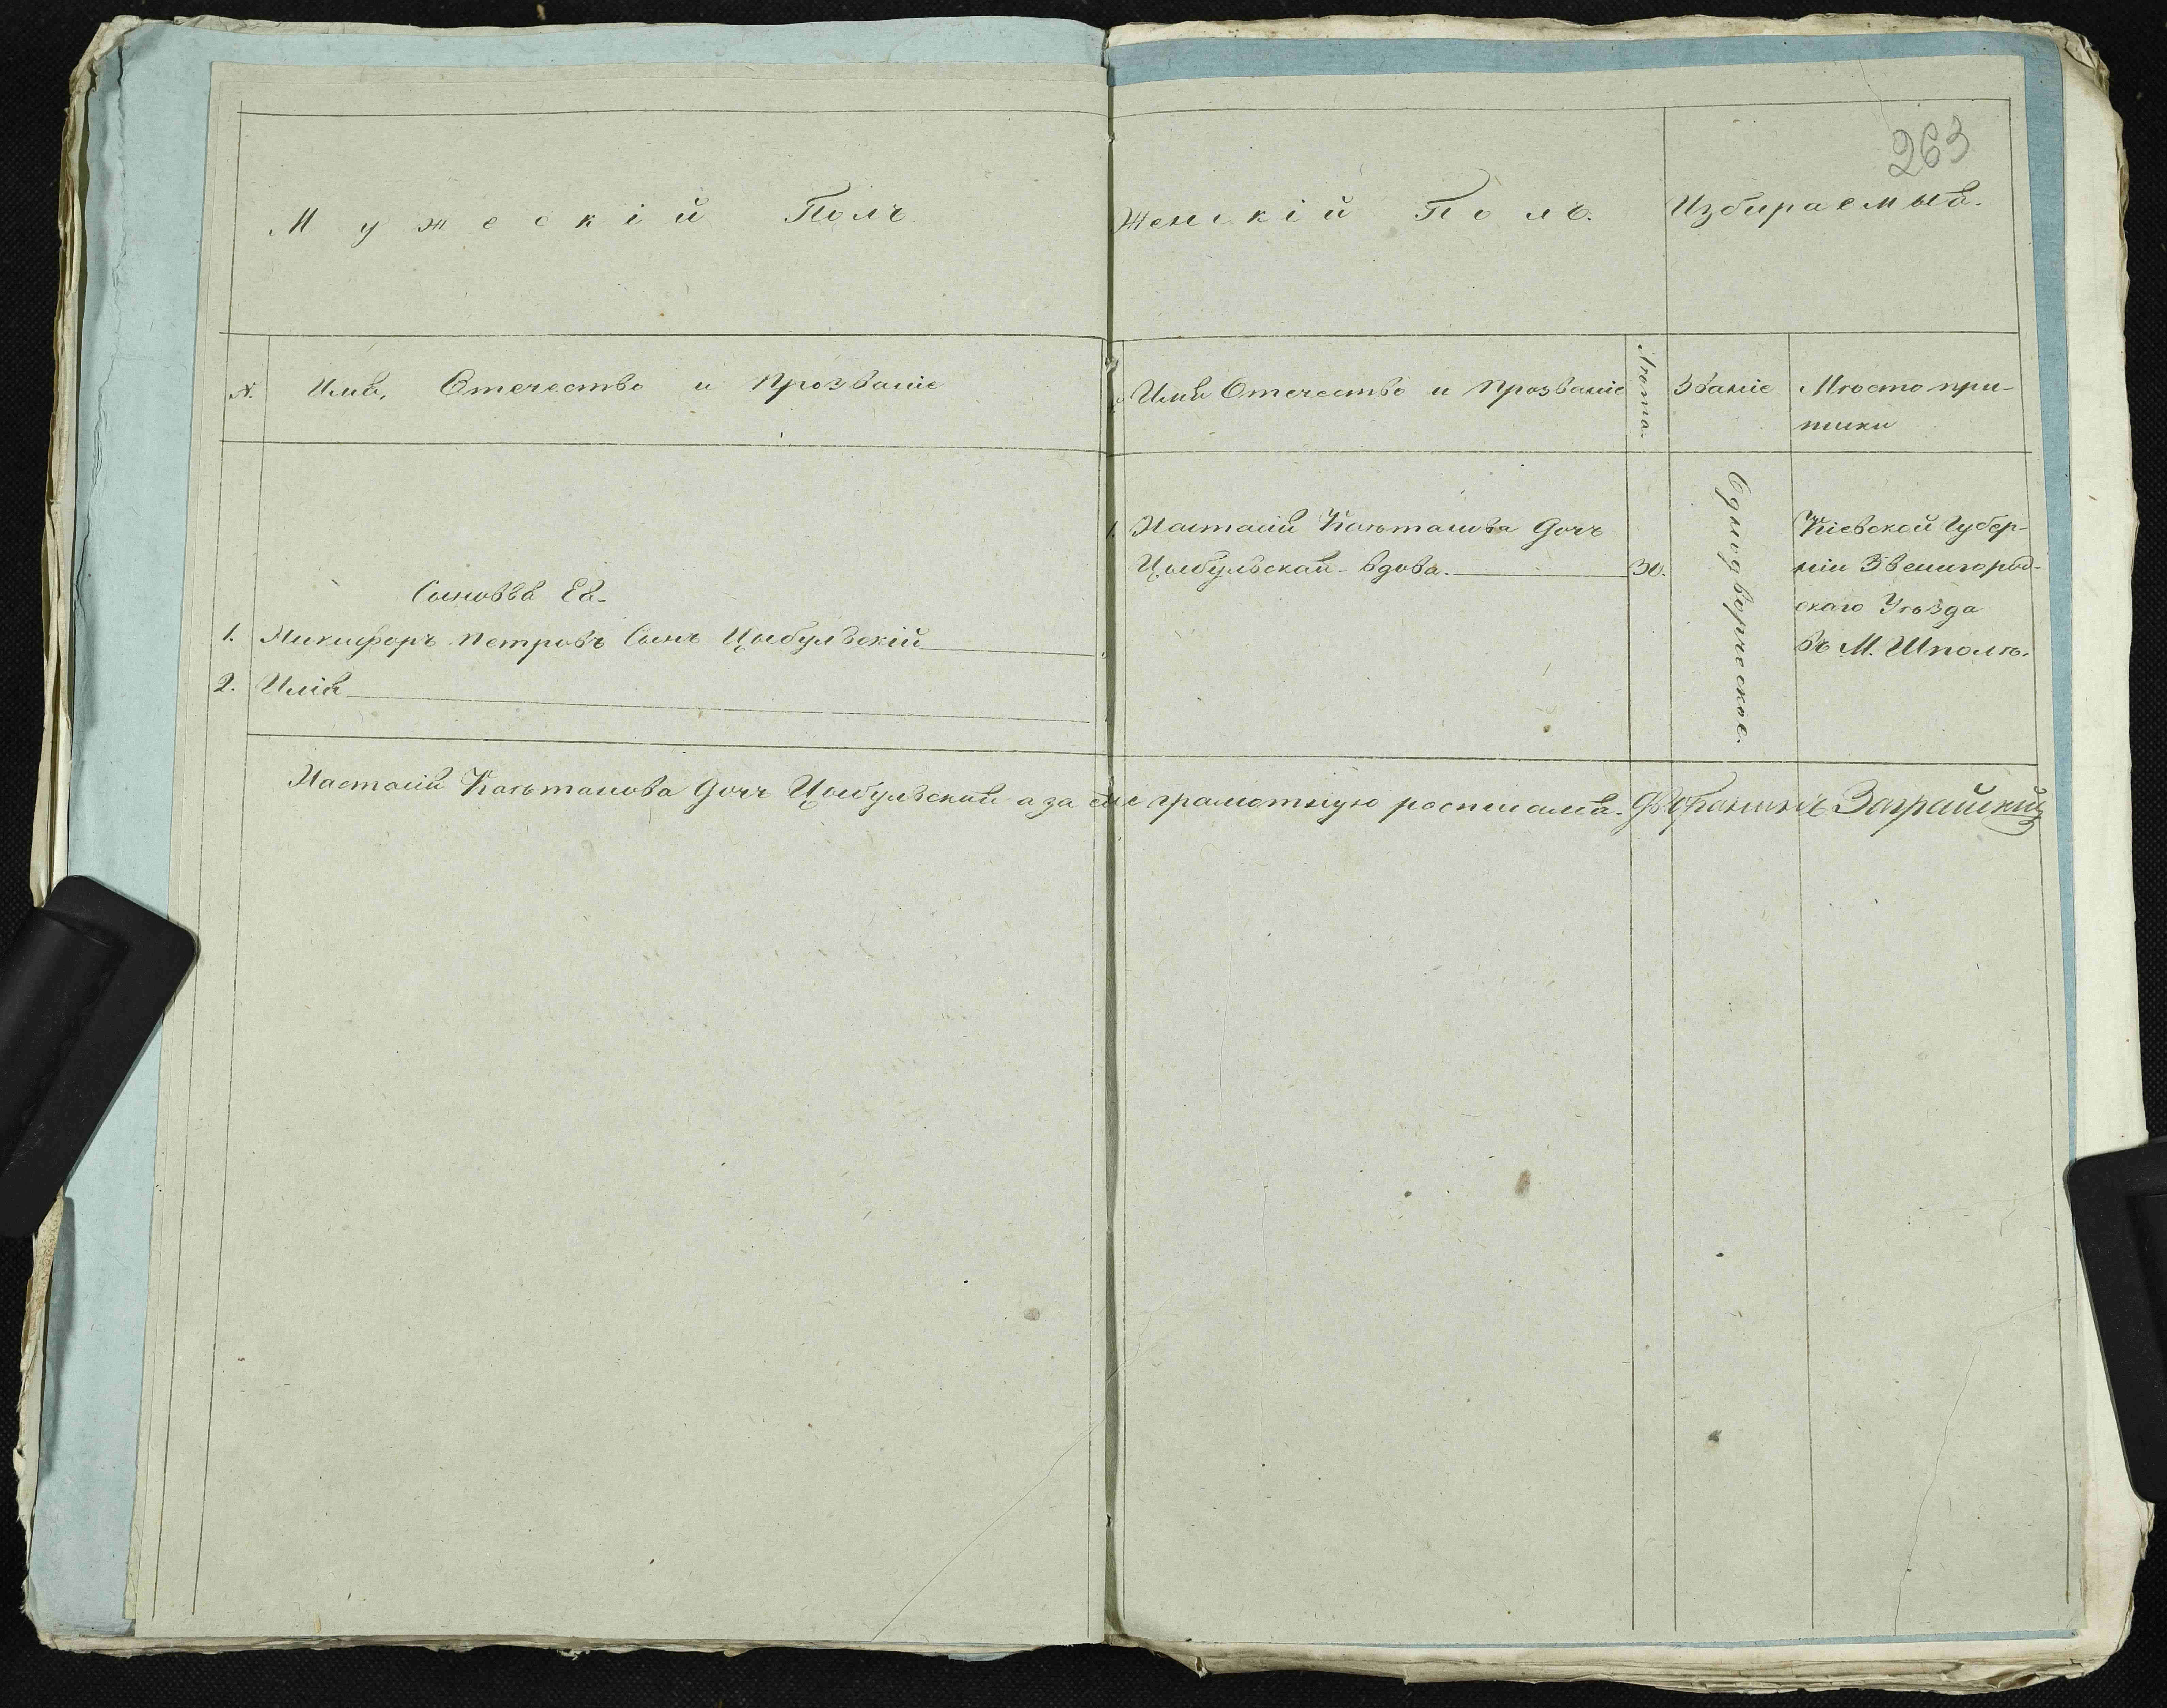 263
Мужескій Полъ.
Женскій Полъ.
Избираемыя.
№.
Имя, Отечество и Прозваніе
Имя Отечество и Прозваніе
Лѣта.
Званіе
Мѣсто при-
писки
1. Настасія Каэтанова Дочь
Цыбульская - Вдова. 30.
Однодворческое.
Кіевской Губер-
ніи Звенигород-
скаго Уѣзда
въ М. Шполѣ.
Сыновья Ея-
1. Никифоръ Петровъ Сынъ Цыбульскій
2. Илія
Настасія Каэтанова Дочь Цыбульская а за ее не грамотную росписался. Заграйскій